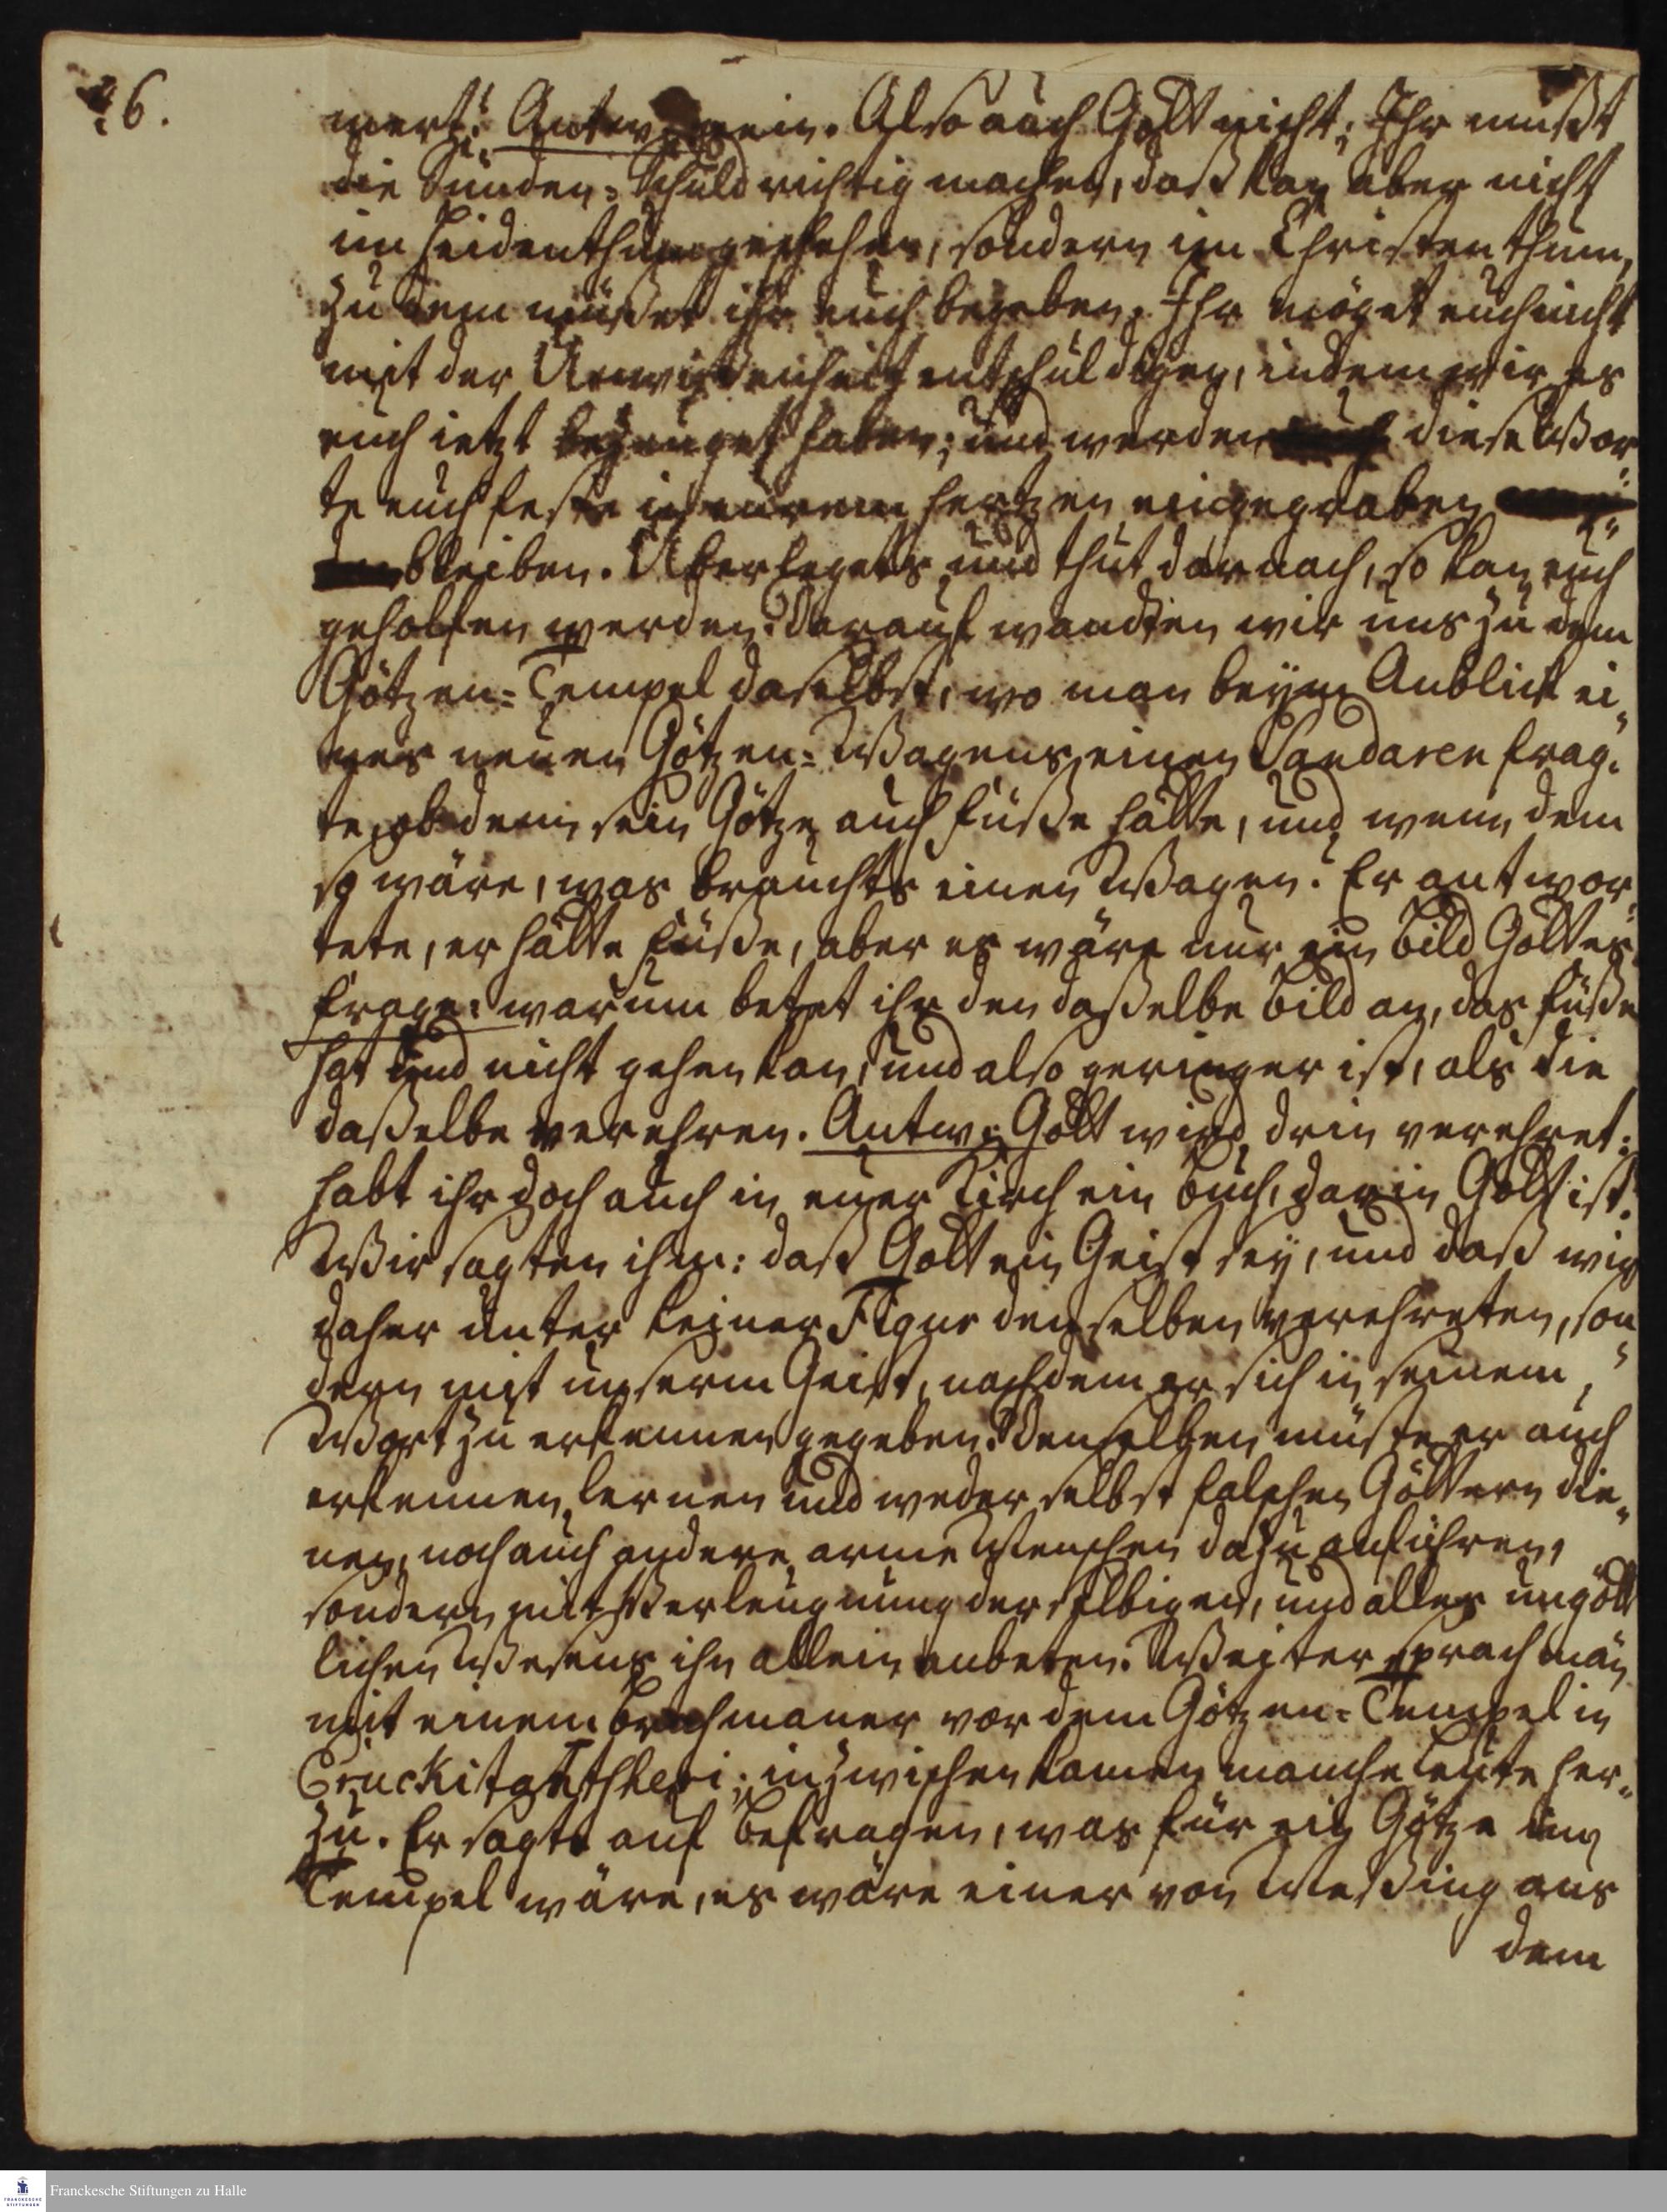 26.
mert? Antw. Nein. Also auch Gott nicht; Ihr müßt
die Sünden-Schuld richtig machen, daß kan aber nicht
im Heidenthum geschehen, sondern im Christenthum,
zu dem müßet ihr euch begeben. Ihr möget euch nicht
mit der Unwißenheit entschuldigen, indem wir es
euch ietzt bezeuget haben; und werden diese Wor-
te euch feste in eurem Hertzen eingegraben
bleiben. Überlegets und thut darnach, so kan euch
geholfen werden. Darauf wandten wir uns zu dem
Götzen-Tempel daselbst, wo man beym Anblick ei-
nes neuen Götzen-Wagens einen Pandaren frag-
te, ob denn sein Götze auch Füße hätte, und wenn dem
so wäre, was brauchts einen Wagen? Er antwor-
tete, er hätte Füße, aber es wäre nur ein Bild Gottes.
Frage: warum betet ihr den daßelbe Bild an, das Füße
hat und nicht gehen kan, und also geringer ist, als die
daßelbe verehren. Antw: Gott wird drin verehret:
habt ihr doch auch in eurer Kirch ein Buch, darin Gott ist.
Wir sagten ihm: daß Gott ein Geist sey, und daß wir
daher unter keiner Figur denselben verehreten, son-
dern mit unserm Geist, nachdem er sich in seinem
Wort zu erkennen gegeben. Denselben müste er auch
erkennen lernen und weder selbst falschen Göttern die-
nen, noch auch andere arme Menschen dazu anführen,
sondern mit Verleugnung derselbigen, und alles ungött
lichen Wesens ihn allein anbeten. Weiter sprach man
mit einem Brachmaner vor dem Götzen-Tempel in
Eruckitantscheri; inzwischen kamen manche Leute her-
zu. Er sagte auf Befragen, was für ein Götze im
Tempel wäre, es wäre einer von Meßing aus
dem
Franckesche Stiftungen zu Halle